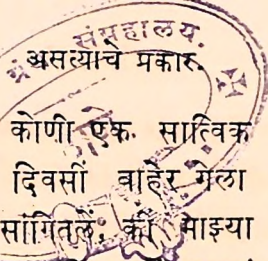 ग्रं संग्रहालय.
असत्याचे प्रकार.
कोणी एक सात्विक
दिवसीं बाहेर गेला
सांगितलें, कीं माझ्या